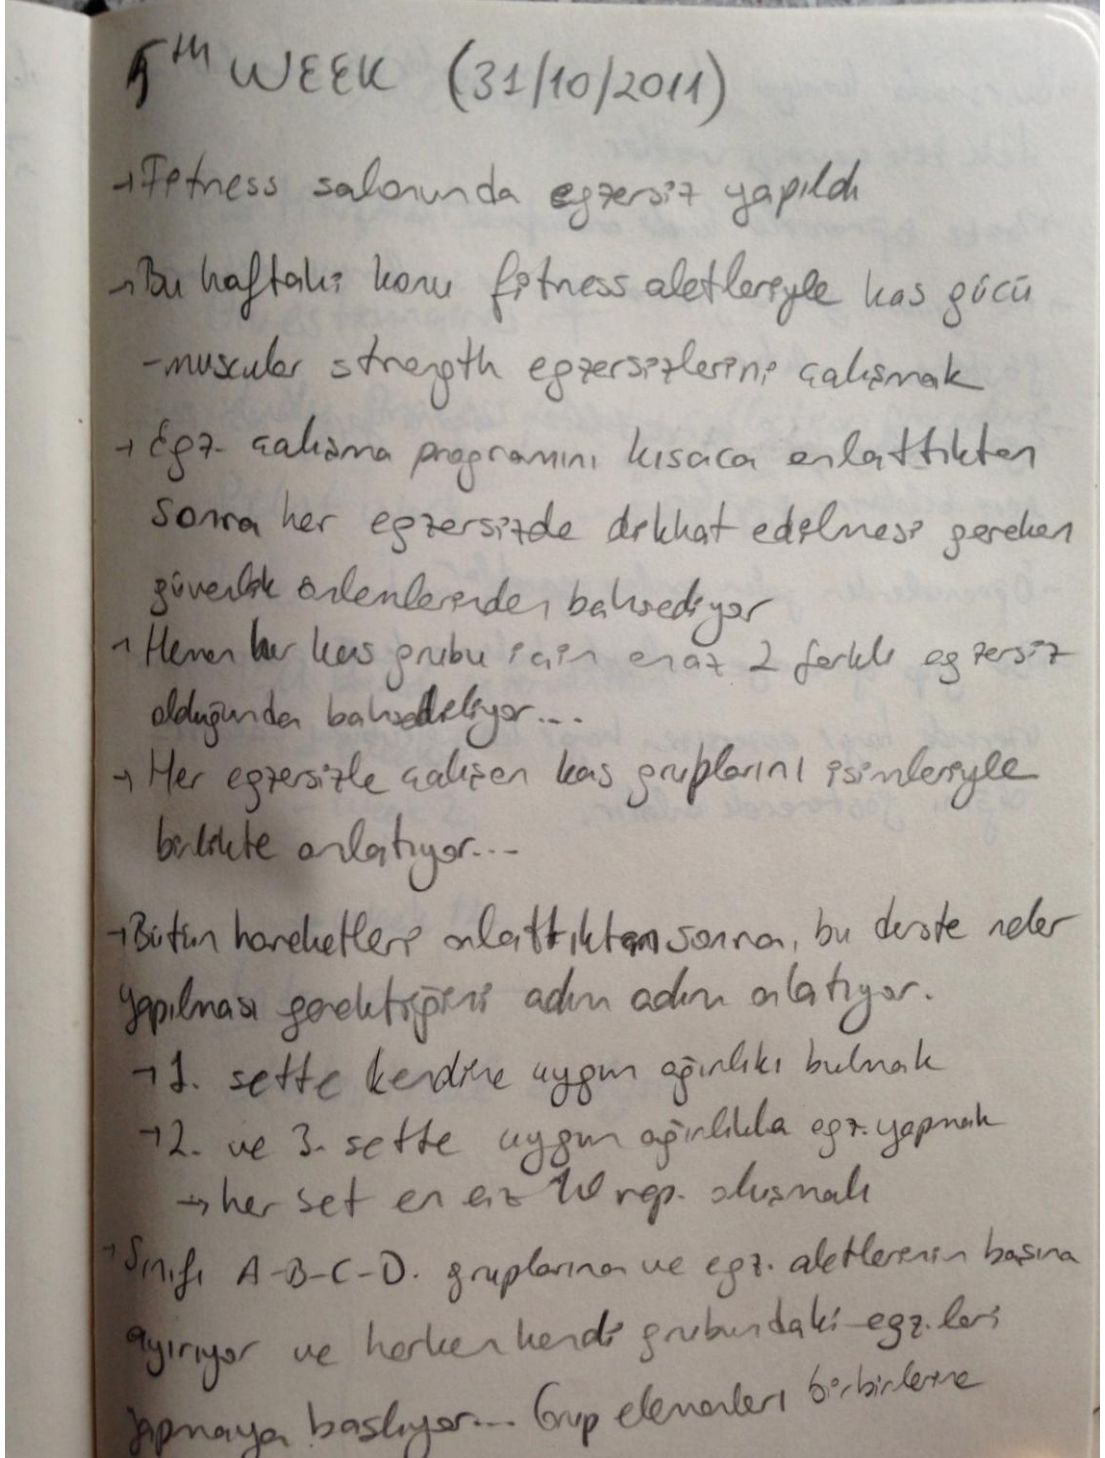 5TH WEEK (31/10/2011)
→Fitness salonunda egzersiz yapıldı
→Bu haftaki konu fitness aletleriyle kas gücü
-muscular strength egzersizlerini çalışmak
→ Egz. çalışma programını kısaca anlattıktan
sonra her egzersizde dikkat edilmesi gereken
güvenlik önlemlerinden bahsediyor
→ Hemen her kas grubu için en az 2 farklı egzersiz
olduğundan bahsediliyor...
→ Her egzersizle çalışan kas gruplarını isimleriyle
birlikte anlatıyor...
→Bütün hareketleri anlattıktan sonra, bu derste neler
yapılması gerektiğini adım adım anlatıyor.
→1. sette kendine uygun ağırlıkı bulmak
→2. ve 3. sette uygun ağırlıkla egz. yapmak
→ her set en az 10 rep. oluşmalı
→Sınıfı A-B-C-D. gruplarına ve egz. aletlerinin başına
ayırıyor ve herkes kendi grubundaki egz.leri
yapmaya başlıyor... Grup elemanları birbirlerine